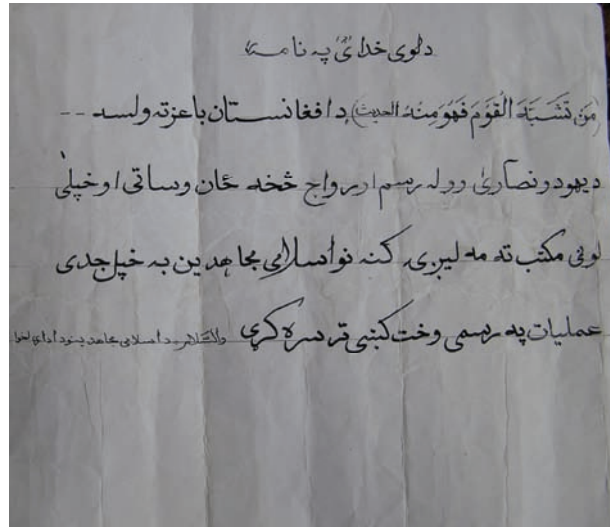 دلوی خدای په نامه
(مَن تَشَبَّهَ الْقَوَمَ فَهُوَ مِنْهُ الحدیث) د افغانستان باعزته ولسه --
دیهود ونصاری رو له رسم او رواج څخه ځان وساتی او خپلی
لوڼی مکتب ته مه لیږی. کنه نو اسلامی مجاهدین به خپل جدی
عملیات په رسمی وخت کښی تر سره کړی والسلام د اسلامی مجاهدینو د